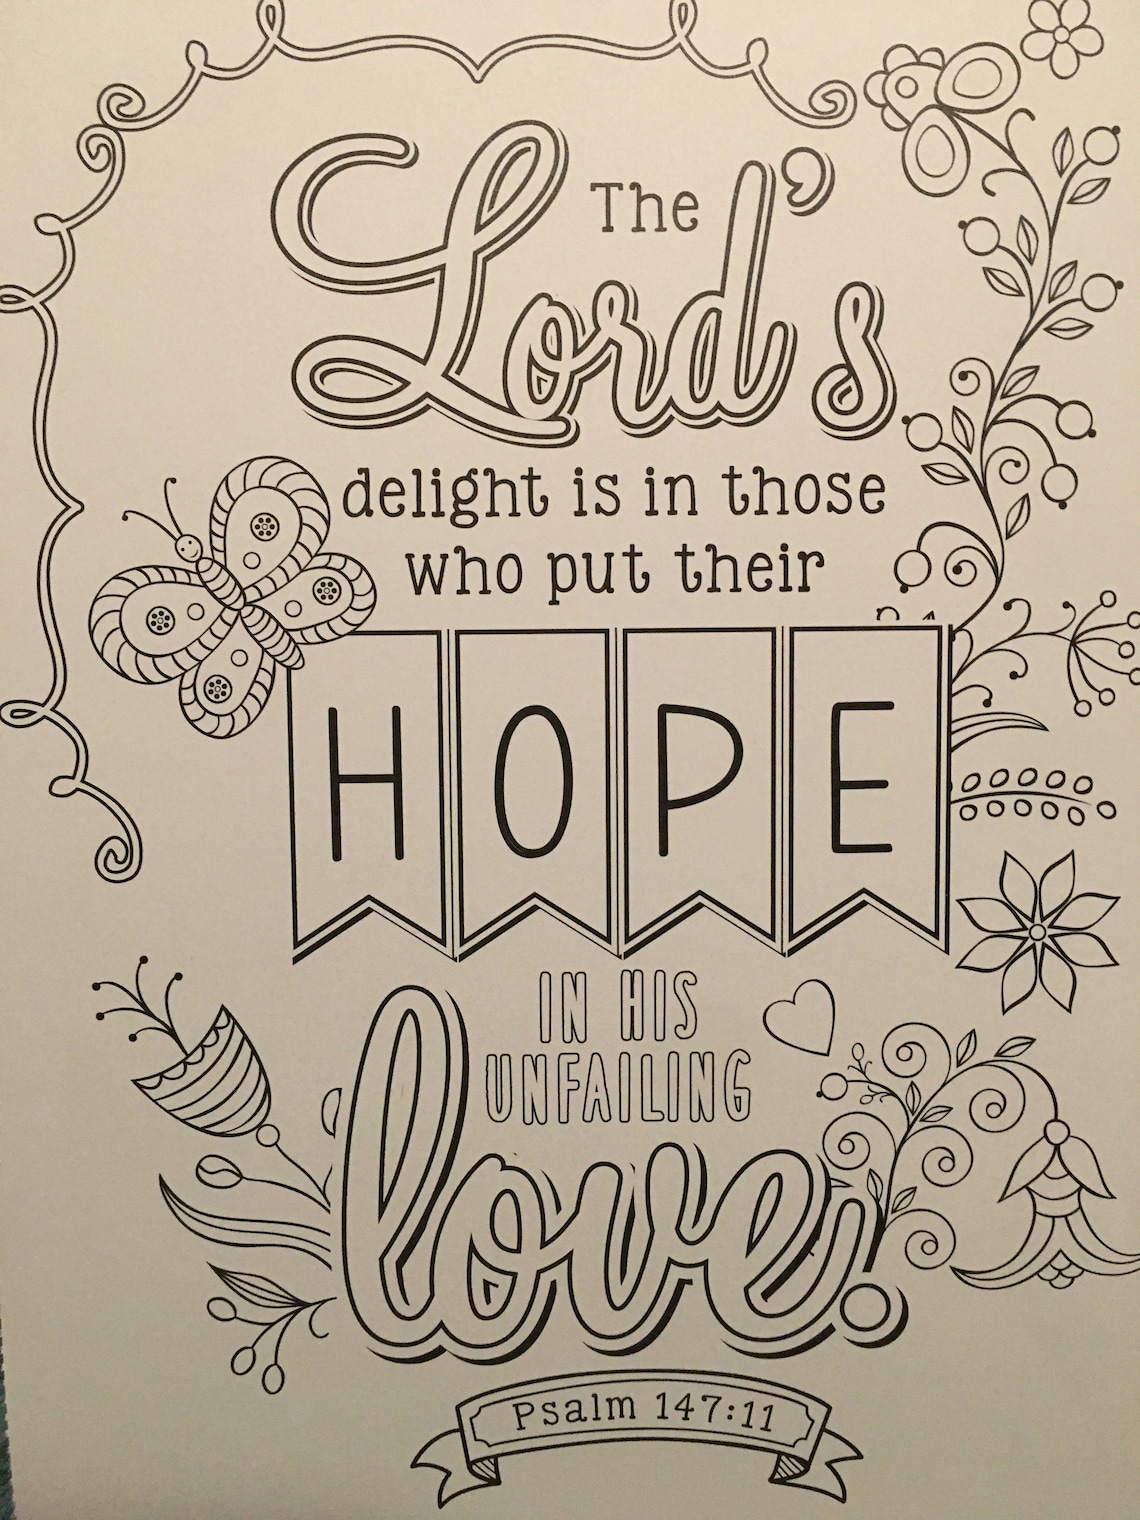 The
Lord's
delight is in those
who put their
HOPE
IN HIS
UNFAILING
love.
Psalm 147:11